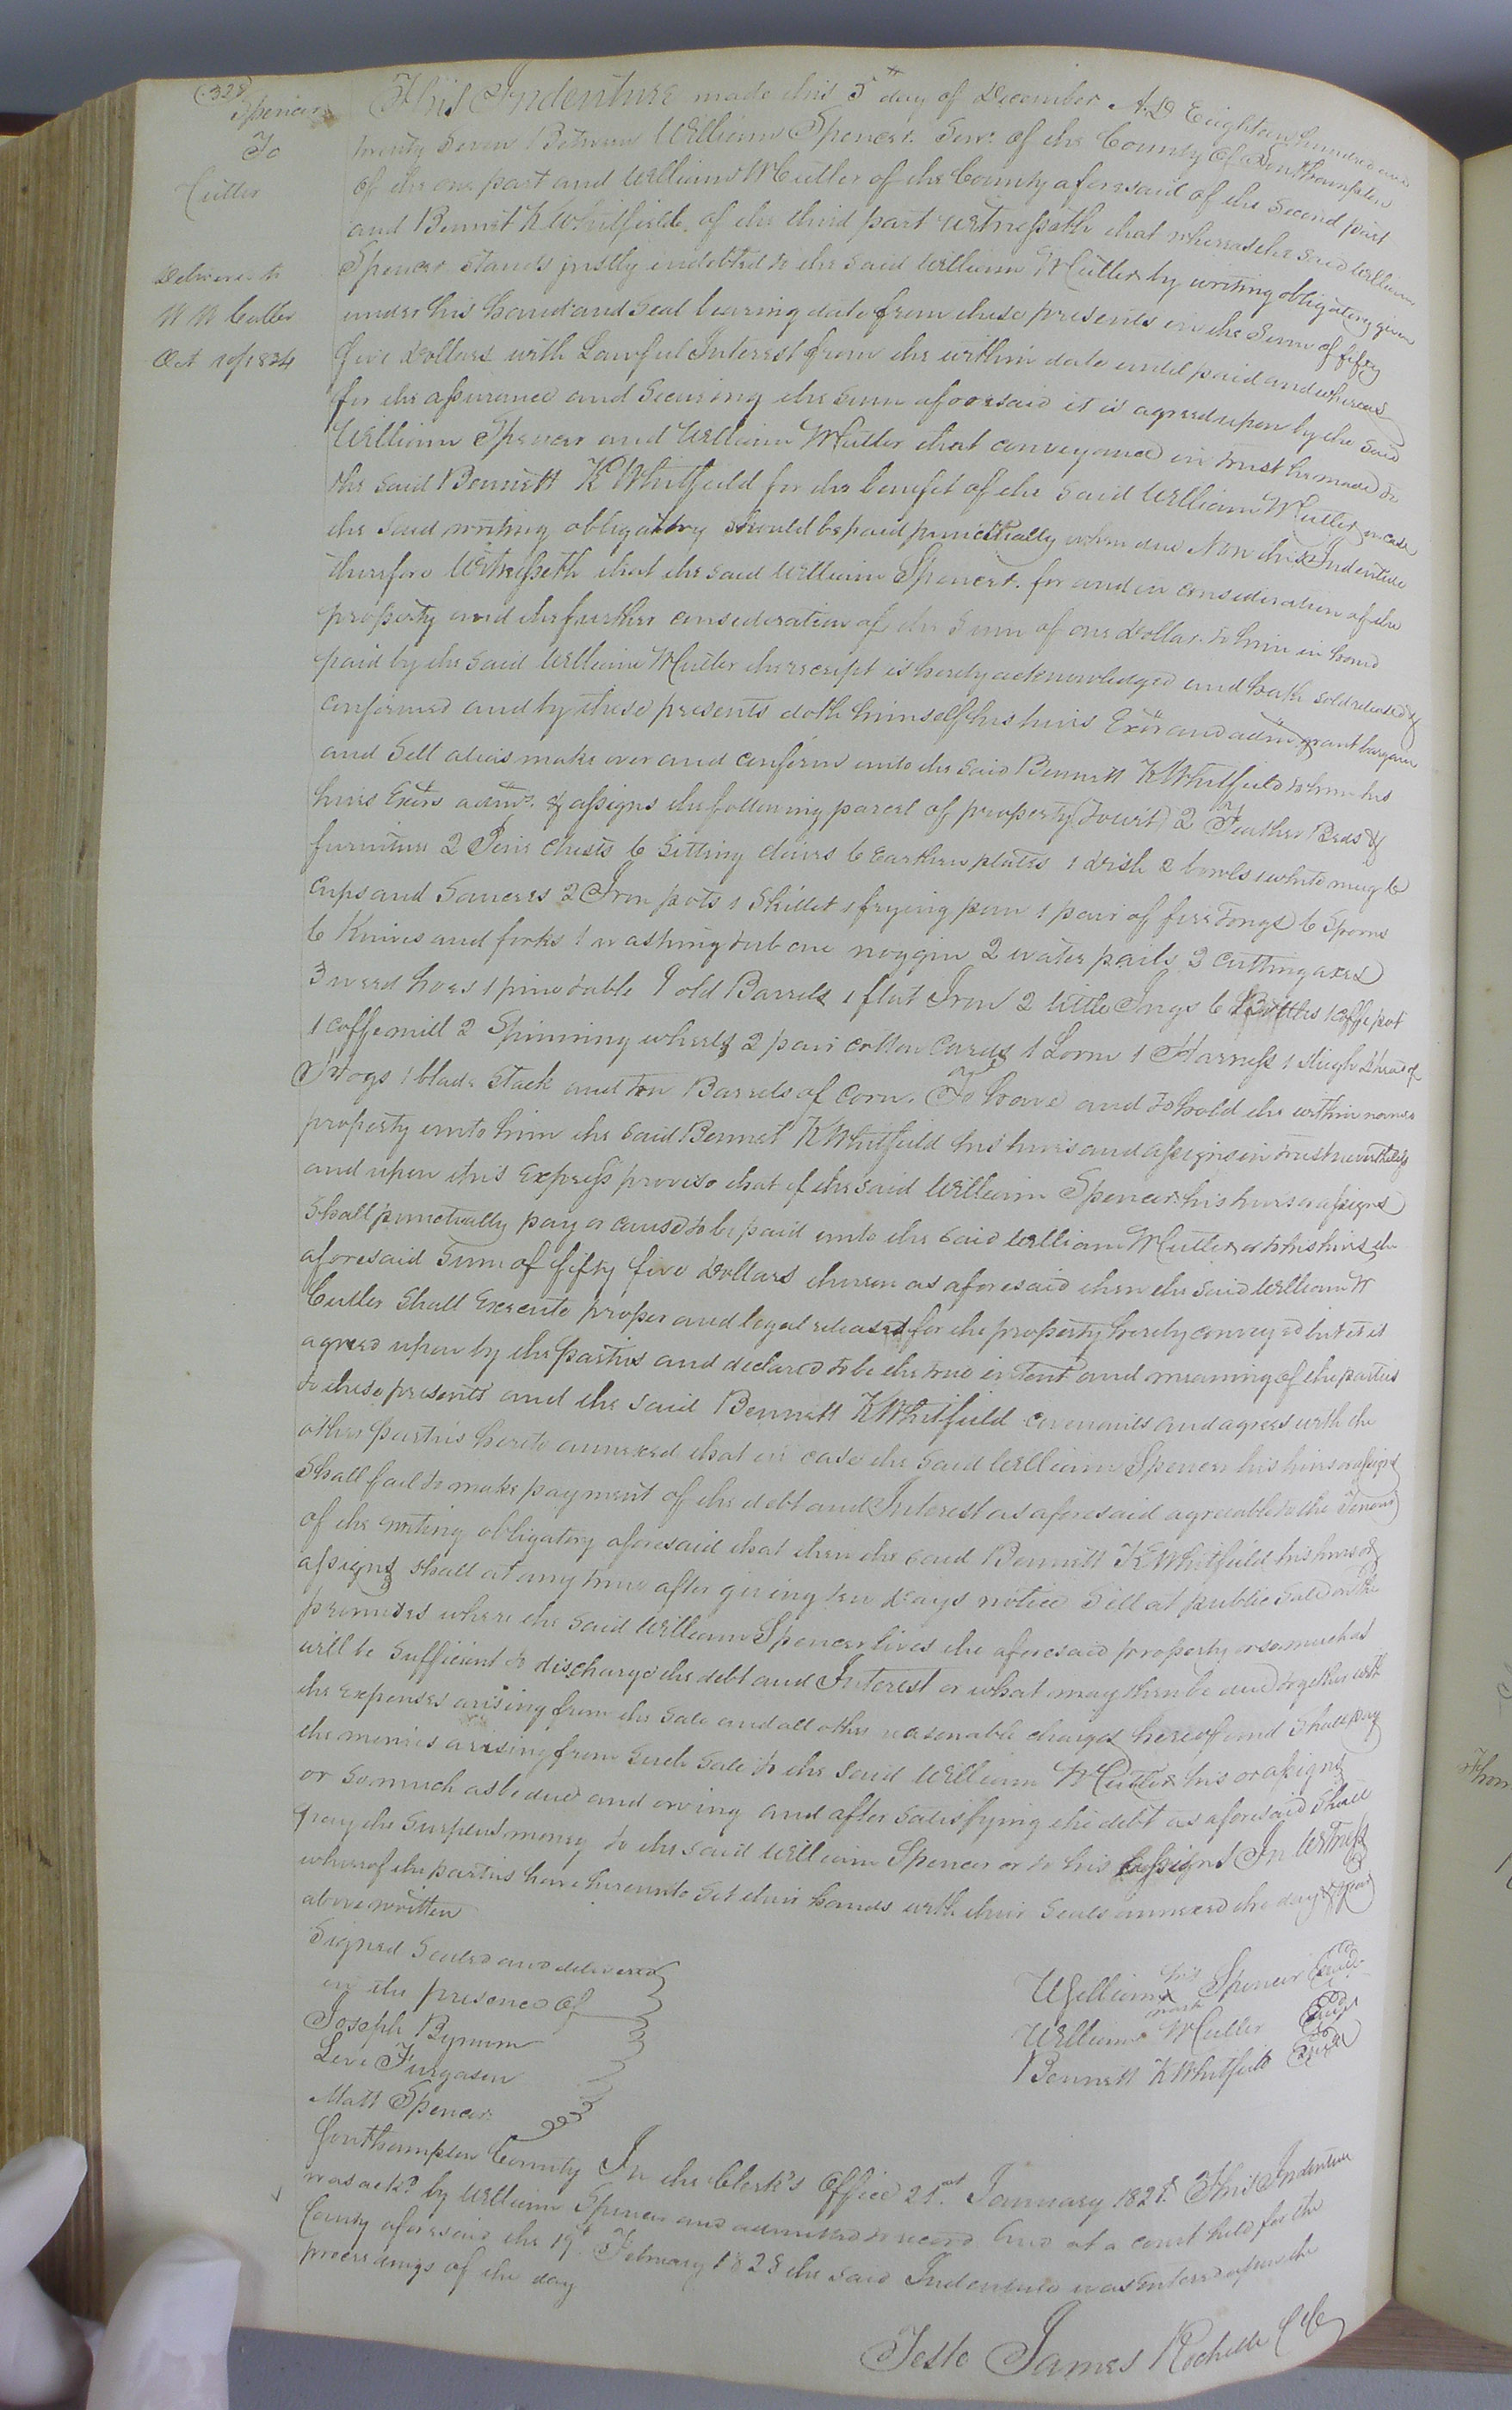 (328)
Spencer
To
Cutler
Delivered to
W W Cutler
Oct 10th 1834
This Indenture made this 5th day of December A.D Eighteen hundred and
twenty Seven Between William Spencer Senr. of the County of Southampton
of the one part and William W Cutler of the County aforesaid of the Second part
and Bennet K Whitfield, of the third part Witnesseth that whereas the Said William
Spencer Stands justly indebted to the Said William W Cutler by writing obligatory given
under his hand and Seal bearing date from these presents in the Sum of fifty
five Dollars with Lawful Interest from the within date until paid and whereas
for the assurance and Securing the Sum aforesaid it is agreed upon by the Said
William Spencer and William W Cutler that conveyance in trust be made to
the Said Bennett K Whitfield for the benefit of the Said William W Cutler in case
the Said writing obligatory Should be paid punctually when due Now this Indenture
therefore Witnesseth that the Said William Spencer. for and in consideration of the
property and the further consideration of the Sum of one Dollar to him in hand
paid by the Said William W Cutler the receipt is hereby acknowledged and hath Sold released &
confirmed and by these presents doth himself his heirs Exōrs and admrs grant bargain
and Sell alien make over and confirm unto the Said Bennett K Whitfield to him his
heirs Exōrs admrs. & assigns the following parcel of property (Towit) 2 Feather Beds &
furniture 2 Pine Chests 6 Sitting chairs 6 Earthen plates 1 Dish 2 bowls 1 white mug 6
cups and Saucers 2 Iron pots 1 Skillet 1 frying pan 1 pair of fire Tongs 6 Spoons
6 Knives and forks 1 washing tub one noggin 2 water pails 2 cutting axes
3 weed hoes 1 pine table 9 old Barrels 1 flat Iron 2 little Jugs 6 Bottles 1 coffe pot
1 coffe mill 2 Spinning wheels 2 pair cotton Cards 1 Loom 1 Harness 1 Sleigh head of
Hogs 1 blade Stack and ten Barrels of Corn. To have and to hold the within named
property unto him the Said Bennet K Whitfield his heirs and assigns in trust nevertheless
and upon this Express proviso that if the Said William Spencer his heirs or assigns
Shall punctually pay or cause to be paid unto the Said William W Cutler or to his heirs the
aforesaid Sum of fifty five Dollars thereon as aforesaid then the Said William W
Cutler Shall Execute proper and legal released for the property hereby conveyed but it is
agreed upon by the parties and declared to be the true intent and meaning of the parties
to these presents and the Said Bennett K Whitfield covenants and agrees with the
other parties hereto annexed that in case the Said William Spencer his heirs or assigns
Shall fail to make payment of the debt and Interest as aforesaid agreeable to the Tenour
of the writing obligatory aforesaid that then the Said Bennett K Whitfield his heirs or
assigns Shall at any time after giving ten days notice Sell at public Sale on the
premises where the Said William Spencer lives the aforesaid property or so much as
will be Sufficient to discharge the debt and Interest or what may then be due together with
the expenses arising from the Sale and all other reasonable charges hereof and Shall pay
the monies arising from Such Sale to the Said William W Cutler his or assigns
or So much as be due and owing and after Satisfying the debt as aforesaid Shall
pay the Surplus money to the Said William Spencer or to his assigns In Witness
whereof the parties have hereunto Set their hands with their Seals annexed the day & year
above written
Signed Sealed and delivered
in the presence of
Joseph Bynum
Levi Furgason
Matt Spencer
his
William X Spencer Seal
mark
William W Cutler Seal
Bennett K Whitfield Seal
Southampton County In the Clerk's Office 21st. January 1828. This Indenture
was ackd. by William Spencer and admitted to record. And at a court held for the
County aforesaid the 19th February 1828 the Said Indenture was entered upon the
proceedings of the day
Teste James Rochelle CC